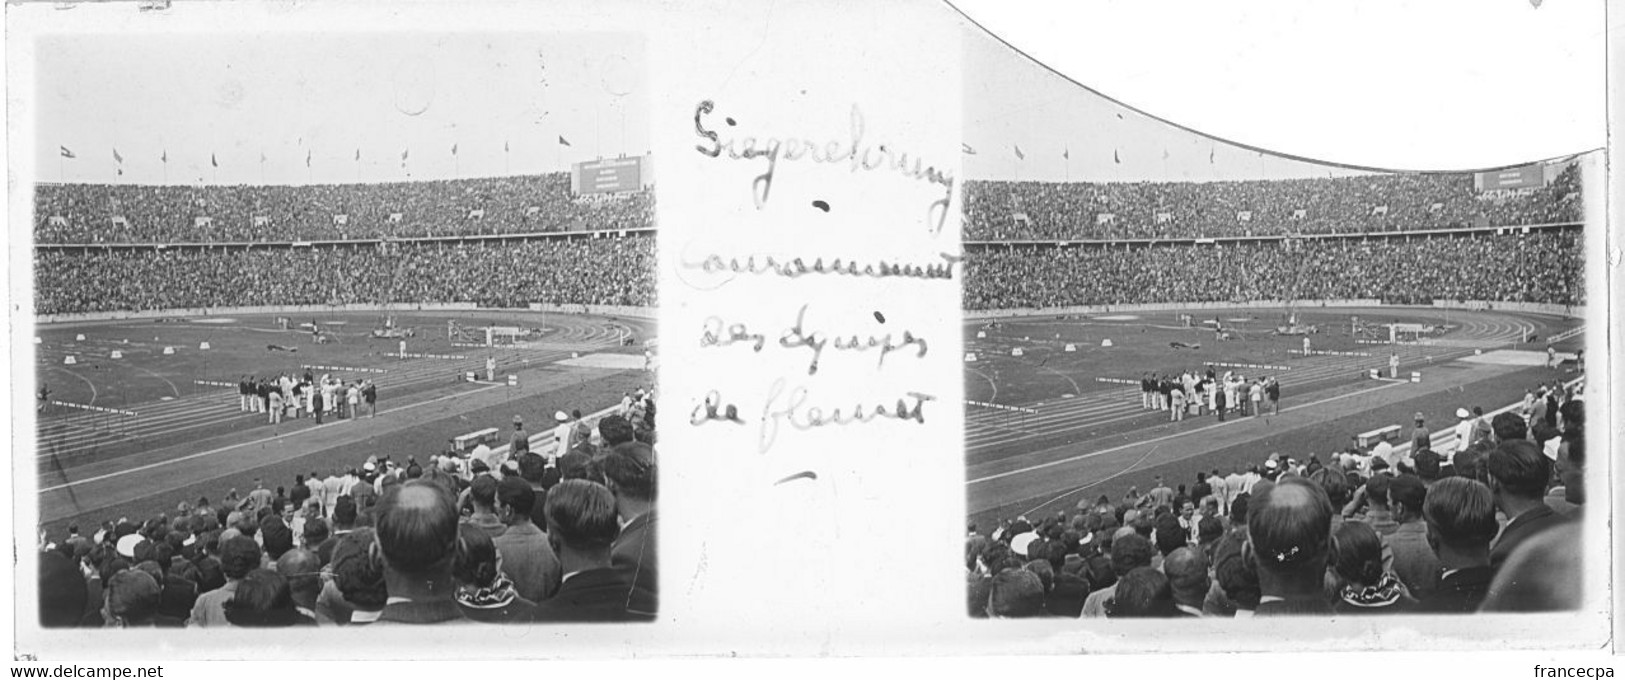 Siegerehrung
Couronnement
des Équipes
de fleuret
www.delcampe.net
francecpa